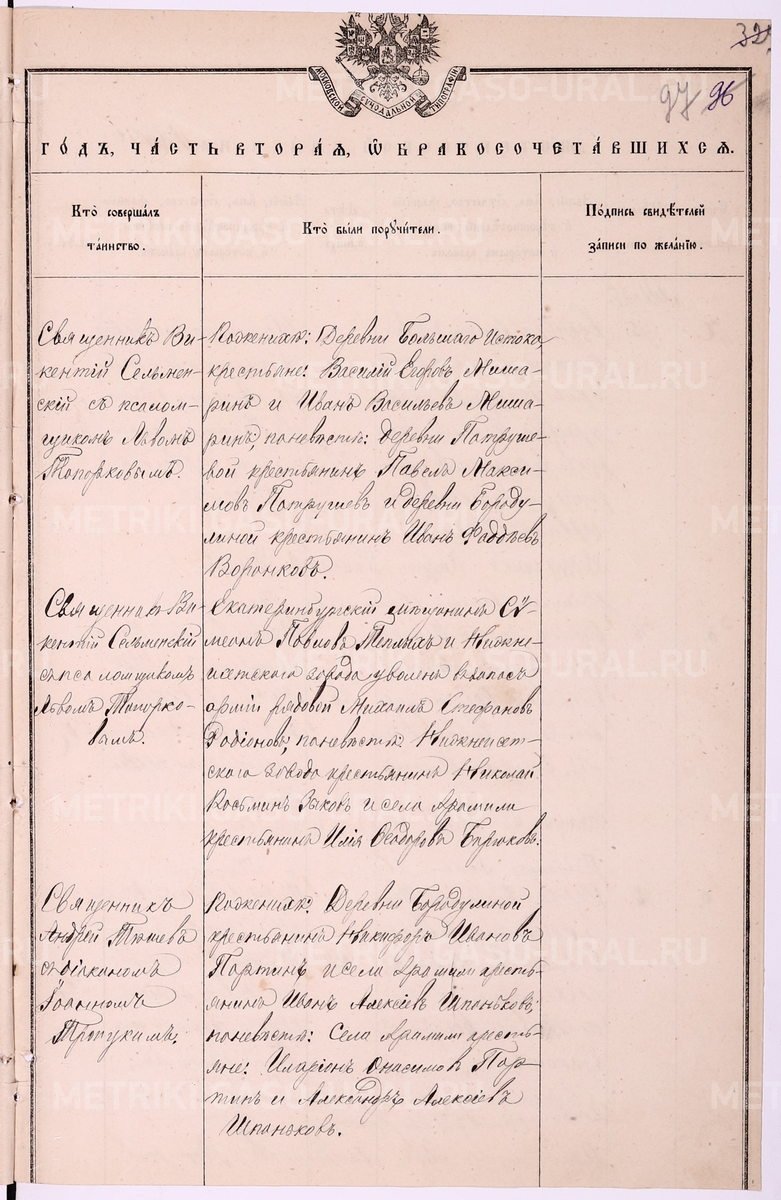 32
97 96
МОСКОВСКОЙ СѴНОДАЛЬНОЙ ТИПОГРАФІИ
ГО́ДЪ, ЧА́СТЬ ВТОРА́Я, Ѡ БРАКОСОЧЕТА́ВШИХСЯ.
Кто̀ совершáлъ
тáинство.
Кто̀ бы́ли поручи́тели.
По́дпись свидѣ́телей
зáписи по желáнію.
Священникъ Ви-
кентій Сельмен-
скій съ псалом-
щикомъ Львомъ
Топорковымъ.
По женихѣ: Деревни Большаго Истока,
крестьяне: Василій Егоровъ Миша-
ринъ и Иванъ Васильевъ Миша-
ринъ; по невѣстѣ: деревни Патруше-
вой крестьянинъ Павелъ Макси-
мовъ Патрушевъ и деревни Бороду-
линой крестьянинъ Иванъ Фаддѣевъ
Воронковъ.
Священникъ Ви-
кентій Сельменскій
съ псаломщикомъ
Львомъ Топорко-
вымъ.
Екатеринбургскій мѣщанинъ Сѵ-
меонъ Павловъ Теплыхъ и Нижне-
исетскаго завода уволенъ въ запасъ
арміи рядовой Михаилъ Стефановъ
Родіоновъ; по невѣстѣ: Нижнеисет-
скаго завода крестьянинъ Николай
Косьминъ и села Арамили
крестьянинъ Илія Ѳеодоровъ Бирюковъ.
Священникъ
Андрей
съ діакономъ
Іоанномъ
По женихѣ: Деревни Бородулиной
крестьянинъ Никифоръ Ивановъ
Портинъ и села Арамили кресть-
янинъ Иванъ Алексіевъ Шпаньковъ;
по невѣстѣ: Села Арамили кресть-
яне: Иларіонъ Онисимовъ Пор-
тинъ и Александръ Алексіевъ
Шпаньковъ.